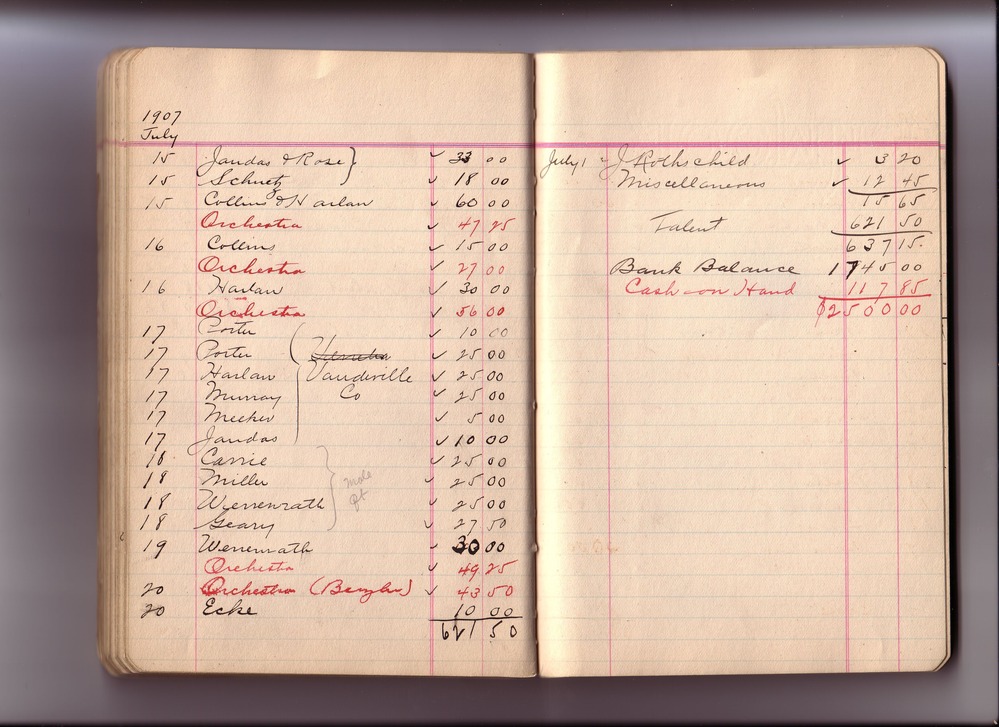 1907
July
15 Jandas & Rose } ✓ 33 00
15 Schuetz ✓ 18 00
15 Collins & Harlan ✓ 60 00
Orchestra ✓ 47 25
16 Collins ✓ 15 00
Orchestra ✓ 27 00
16 Harlan ✓ 30 00
Orchestra ✓ 56 00
17 Porter ✓ 10 00
17 Porter ✓ 25 00
17 Harlan Vaudeville ✓ 25 00
17 Murray Co ✓ 25 00
17 Meeker ✓ 5 00
17 Jandas ✓ 10 00
18 Carrie ✓ 25 00
18 Miller male ✓ 25 00
18 Werrenrath qt ✓ 25 00
18 Geary ✓ 27 50
19 Werrenrath ✓ 30 00
Orchestra ✓ 49 25
20 Orchestra (Benzler) ✓ 43 50
20 Ecke 10 00
621 50
July 1 J Rothschild ✓ 3 20
Miscellaneous ✓ 12 45
15 65
Talent 621 50
637 15
Bank Balance 1745 00
Cash on Hand 117 85
$2500 00